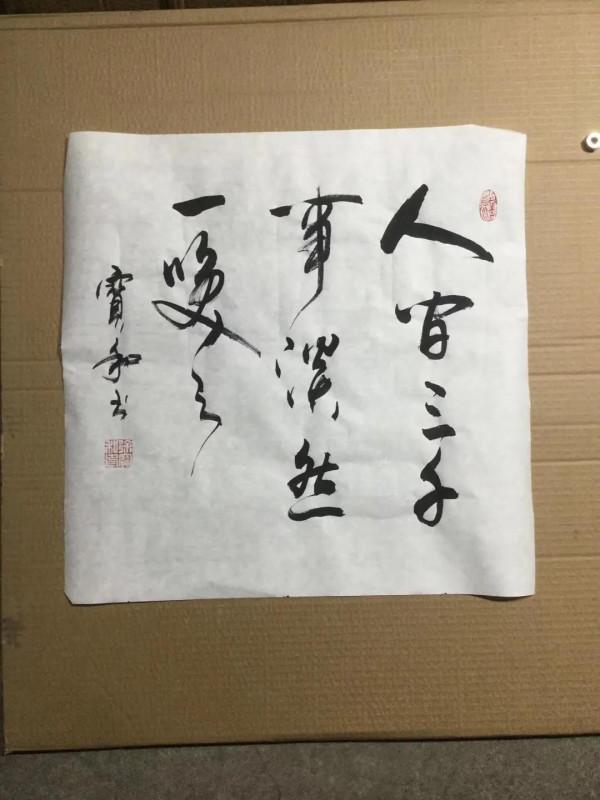 人间三千
事淡然
一咲之
寶和书